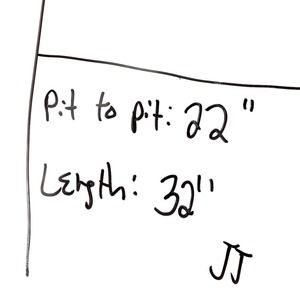 Pit to pit: 22"
Length: 32"
JJ